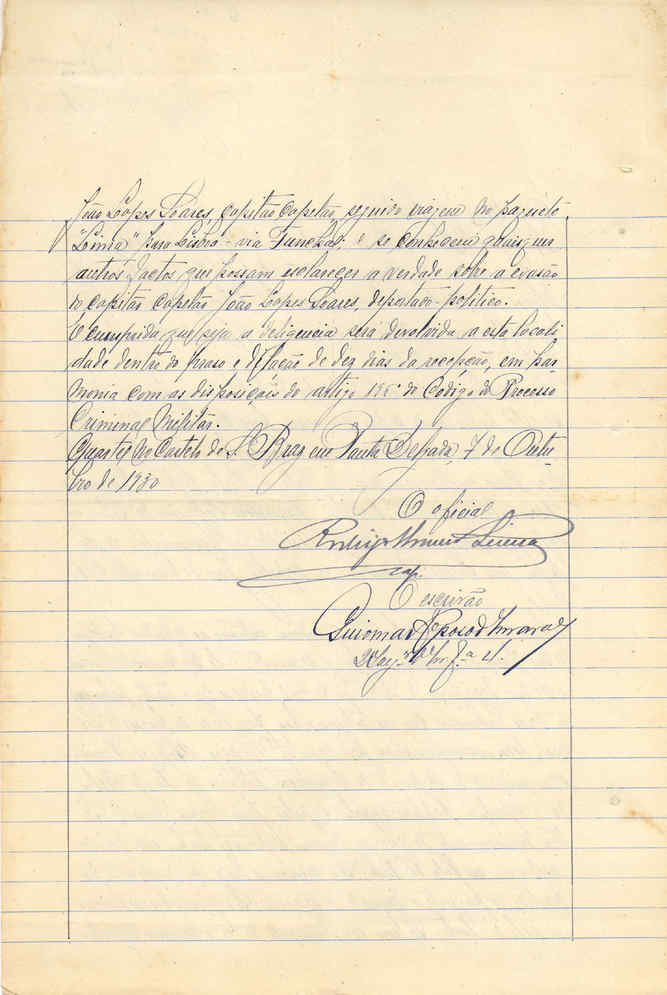 João Lopes Soares, capitão capelão, seguido viagem no paquete
"Lima" para Lisboa - via Funchal; e se conhecem quaisquer
outros factos que possam esclarecer a verdade sobre a evasão
do capitão capelão João Lopes Soares, deportado politico.
E cumprida que seja a deligencia será devolvida a esta locali
dade dentro do praso e dilação de dez dias da recepção, em har
monia com as disposições do artigo do Codigo do Processo
Criminal Militar.
Quartel no Castelo de S. Braz em Ponta Delgada, 7 de Outu
bro de 1930
O oficial
Rodrigo
cap.
O escrivão